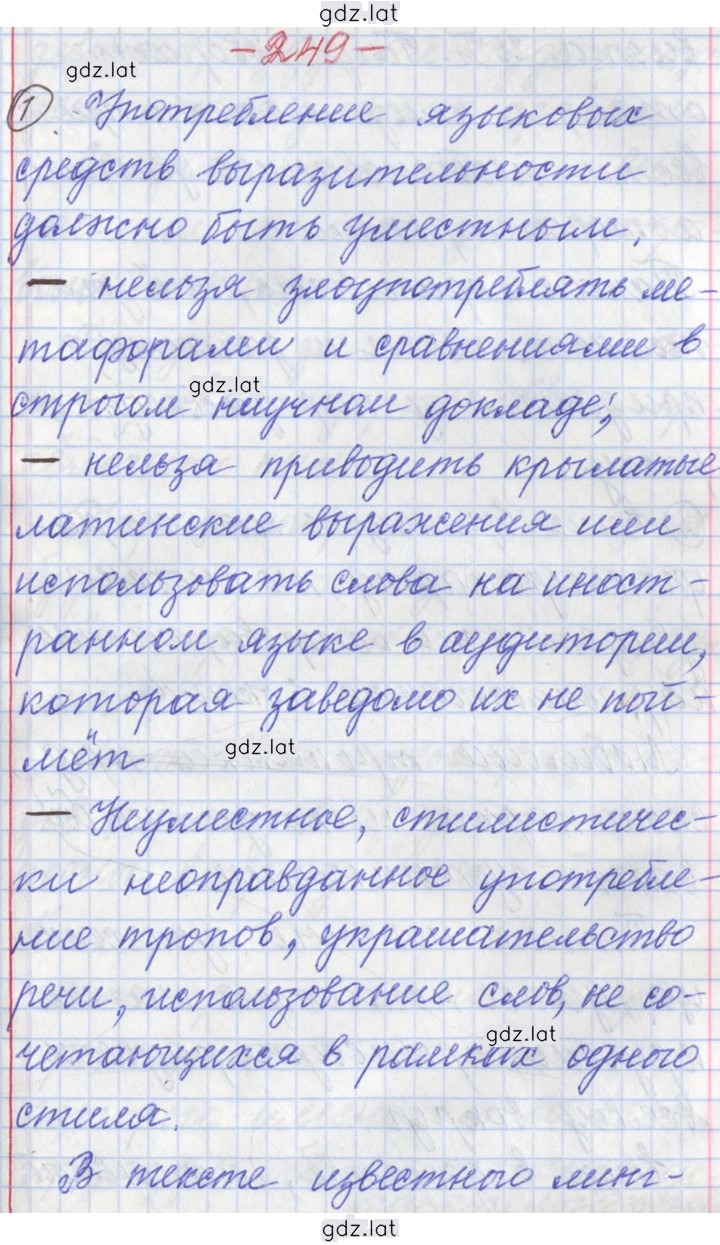 gdz.lat
-249-
gdz.lat
1 Употребление языковых
средств выразительности
должно быть уместным.
— нельзя злоупотреблять ме-
тафорами и сравнениями в
gdz.lat
строгом научном докладе;
— нельза приводить крылатые
латинские выражения или
использовать слова на иност-
ранном языке в аудитории,
которая заведомо их не пой-
мёт
gdz.lat
— Неуместное, стилистичес-
ки неоправданное употребле-
ние тропов, украшательство
речи, использование слов, не со-
gdz.lat
четающихся в рамках одного
стиля.
В тексте известного линг-
gdz.lat